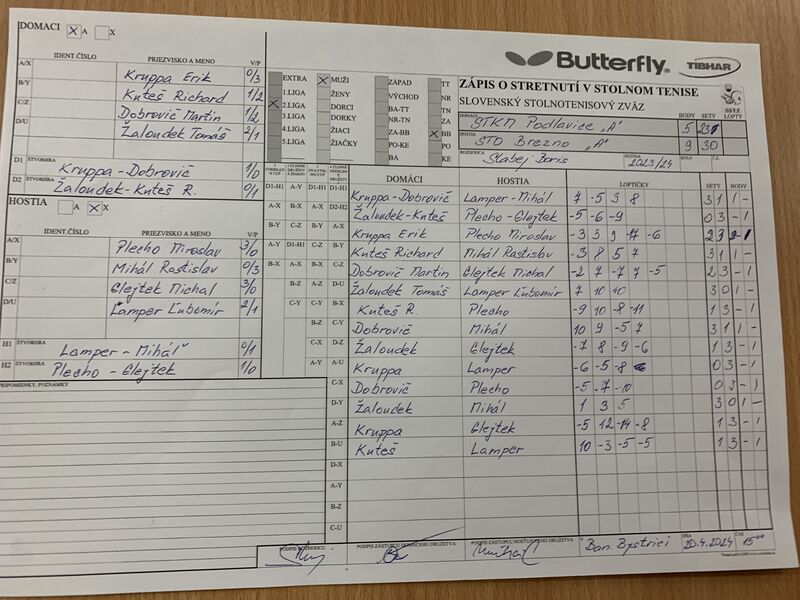 DOMACI X A X
IDENT.ČÍSLO PRIEZVISKO A MENO V/P
A/X Kruppa Erik 0/3
B/Y Kuteš Richard 1/2
C/Z Dobrovič Martin 1/2
D/U Žaloudek Tomáš 2/1
D1 ŠTVORHRA Kruppa-Dobrovič 1/0
D2 Žaloudek-Kuteš R. 0/1
HOSTIA A X X
IDENT.ČÍSLO PRIEZVISKO A MENO V/P
A/X Plecho Miroslav 3/0
B/Y Mihál Rastislav 0/3
C/Z Glejtek Michal 3/0
D/U Lamper Ľubomír 2/1
H1 ŠTVORHRA Lamper - Mihál 0/1
H2 Plecho - Glejtek 1/0
PRIPOMIENKY, POZNÁMKY
EXTRA X MUŽI ZÁPAD TT
1.LIGA ŽENY VÝCHOD NR
X 2.LIGA DORCI BA-TT TN
3.LIGA DORKY NR-TN ZA
4.LIGA ŽIACI ZA-BB X BB
5.LIGA ŽIAČKY PO-KE PO
BA KE
Butterfly TIBHAR
ZÁPIS O STRETNUTÍ V STOLNOM TENISE
SLOVENSKÝ STOLNOTENISOVÝ ZVÄZ
SSTZ
DOMÁCI STKM Podlavice "A" BODY 5 SETY LOPTY
HOSTIA STO Brezno "A" 9 30
ROZHODCA Slabej Boris SEZÓNA 2023/24 KOLO Č.Z.
DOMÁCI HOSTIA LOPTIČKY SETY BODY
D1-H1 Kruppa-Dobrovič Lamper-Mihál 7 -5 3 8 3 1 1 -
D2-H2 Žaloudek-Kuteš Plecho-Glejtek -5 -6 -9 0 3 - 1
A-X Kruppa Erik Plecho Miroslav -3 3 9 -17 -6 2 3 - 1
B-Y Kuteš Richard Mihál Rastislav -3 8 5 7 3 1 1 -
C-Z Dobrovič Martin Glejtek Michal -2 7 -7 7 -5 2 3 - 1
D-U Žaloudek Tomáš Lamper Ľubomír 7 10 10 3 0 1 -
B-X Kuteš R. Plecho -9 10 -8 -11 1 3 - 1
C-Y Dobrovič Mihál 10 9 -5 7 3 1 1 -
D-Z Žaloudek Glejtek -7 8 -9 -6 1 3 - 1
A-U Kruppa Lamper -6 -5 -8 0 3 - 1
C-X Dobrovič Plecho -5 -7 -10 0 3 - 1
D-Y Žaloudek Mihál 1 3 5 3 0 1 -
A-Z Kruppa Glejtek -5 12 -14 -8 1 3 - 1
B-U Kuteš Lamper 10 -3 -5 -5 1 3 - 1
D-X
A-Y
B-Z
C-U
PODPIS ROZHODCU PODPIS ZÁSTUPCU DOMÁCEHO DRUŽSTVA PODPIS ZÁSTUPCU HOSŤUJÚCEHO DRUŽSTVA V Ban. Bystrici DŇA 20.4.2024 ČAS 15 00